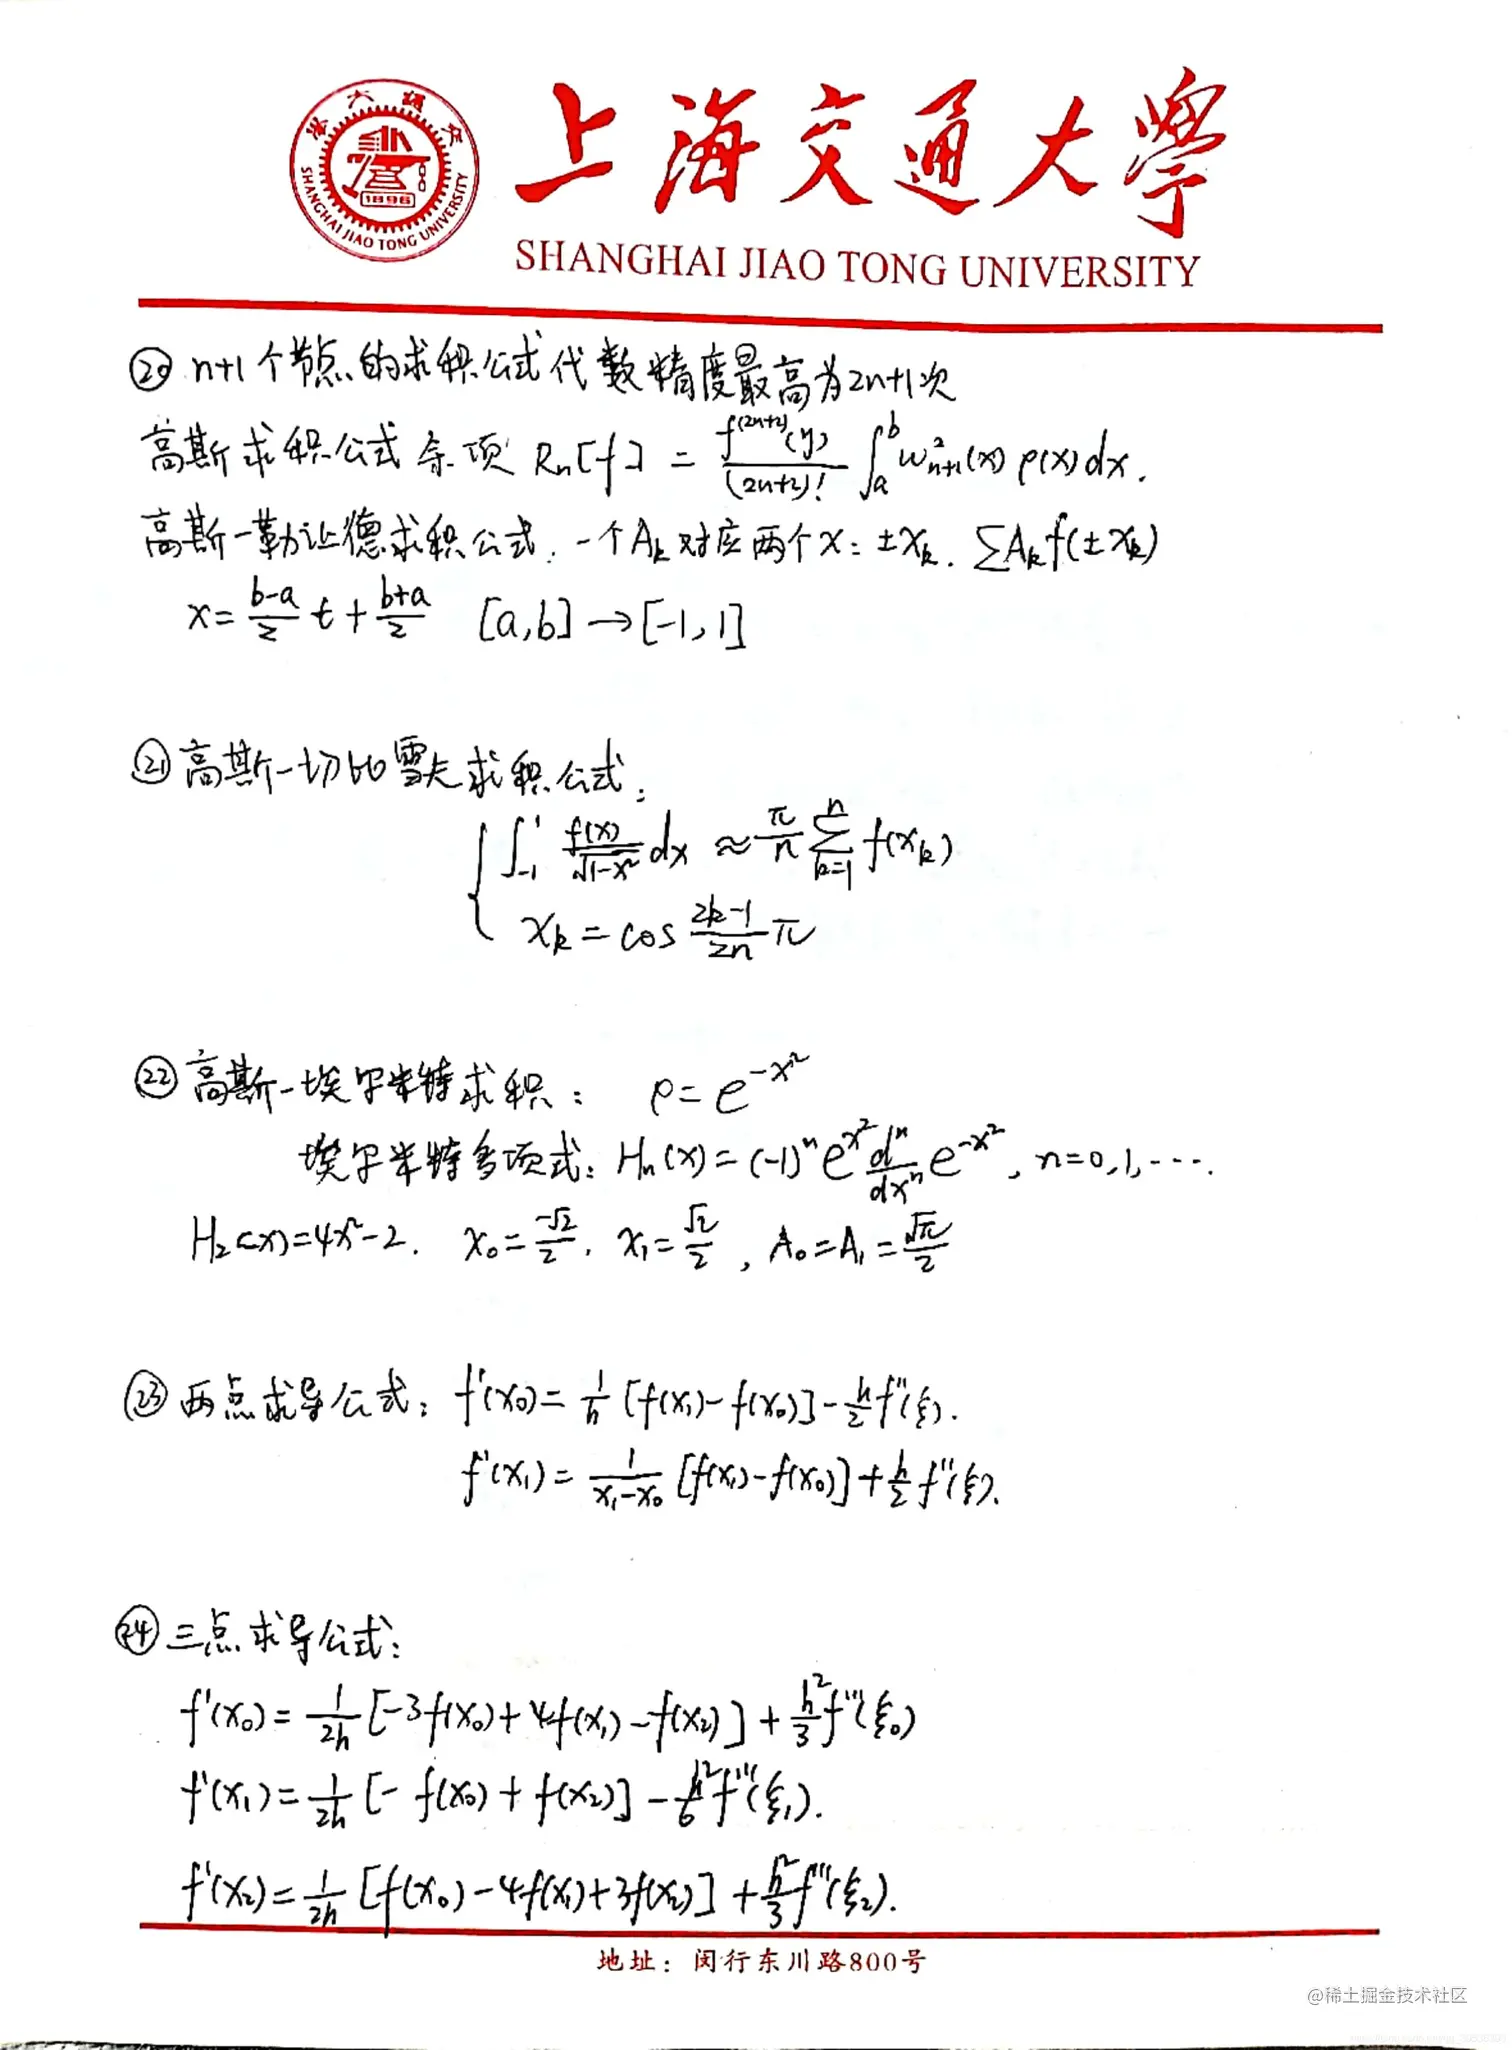 上海交通大學
SHANGHAI JIAO TONG UNIVERSITY
1896
SHANGHAI JIAO TONG UNIVERSITY
⑳ n+1个节点的求积公式代数精度最高为2n+1次
高斯求积公式余项 Rn[f] = f^(2n+2)(η)/(2n+2)! ∫_a^b ω²_{n+1}(x) ρ(x)dx.
高斯-勒让德求积公式. 一个A_k对应两个x: ±x_k. ∑A_k f(±x_k)
x = (b-a)/2 t + (b+a)/2 [a,b] → [-1,1]
㉑ 高斯-切比雪夫求积公式:
∫_{-1}^{1} f(x)/√(1-x²) dx ≈ π/n ∑_{k=1}^{n} f(x_k)
x_k = cos (2k-1)/2n π
㉒ 高斯-埃尔米特求积: ρ = e^{-x²}
埃尔米特多项式: H_n(x) = (-1)^n e^{x²} d^n/dx^n e^{-x²}, n=0,1,....
H_2(x)=4x²-2. x_0 = -√2/2. x_1 = √2/2, A_0 = A_1 = √π/2
㉓ 两点求导公式: f'(x_0) = 1/h [f(x_1) - f(x_0)] - h/2 f''(ξ).
f'(x_1) = 1/(x_1-x_0) [f(x_1) - f(x_0)] + h/2 f''(ξ).
㉔ 三点求导公式:
f'(x_0) = 1/2h [-3f(x_0) + 4f(x_1) - f(x_2)] + h²/3 f'''(ξ_0)
f'(x_1) = 1/2h [- f(x_0) + f(x_2)] - h²/6 f'''(ξ_1).
f'(x_2) = 1/2h [f(x_0) - 4f(x_1) + 3f(x_2)] + h²/3 f'''(ξ_2).
地址：闵行东川路800号
@稀土掘金技术社区